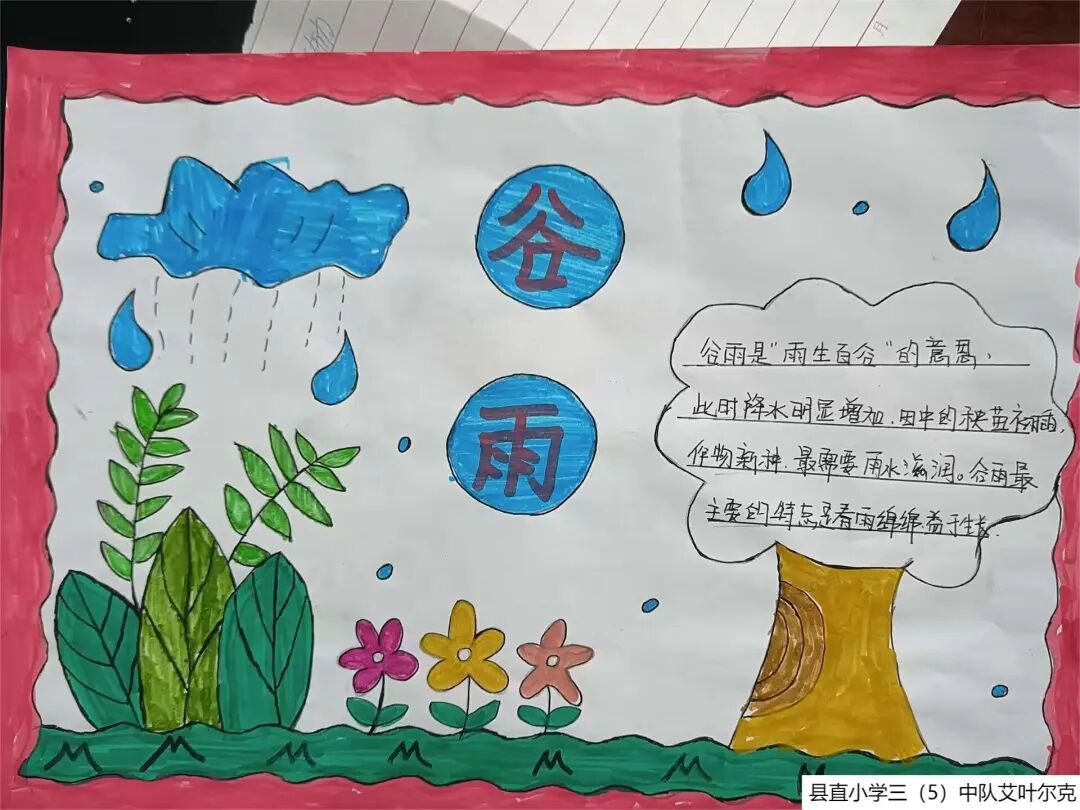 谷
雨
谷雨是“雨生百谷”的意思,
此时降水明显增加.田中的秧苗初插,
作物新种.最需要雨水滋润。谷雨最
主要的特点是春雨绵绵益于生长.
县直小学三（5）中队艾叶尔克